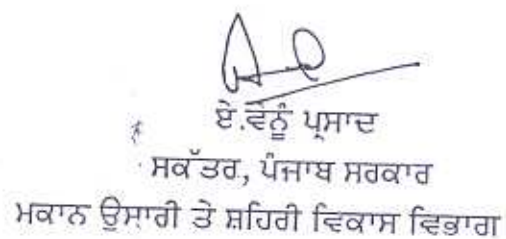 ਏ.ਵੇਨੂੰ ਪ੍ਰਸਾਦ
ਸਕੱਤਰ, ਪੰਜਾਬ ਸਰਕਾਰ
ਮਕਾਨ ਉਸਾਰੀ ਤੇ ਸ਼ਹਿਰੀ ਵਿਕਾਸ ਵਿਭਾਗ